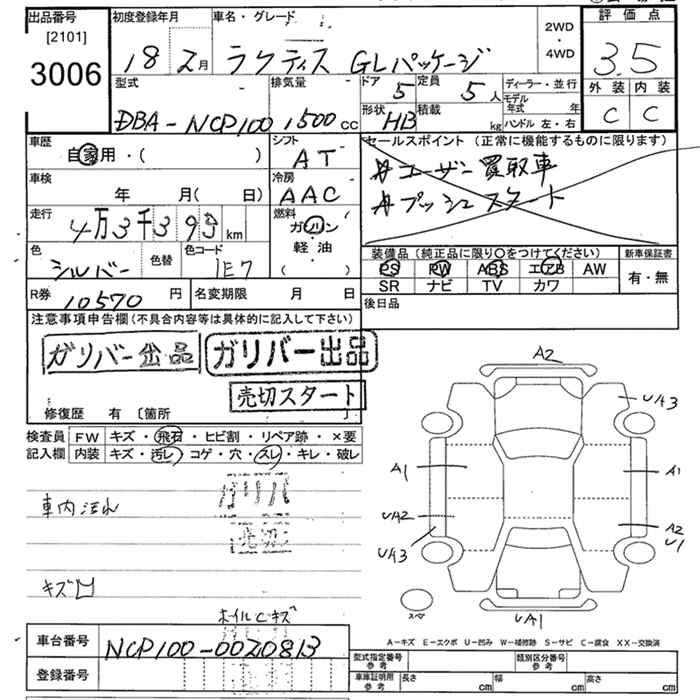 出品番号
[2101]
3006
初度登録年月
18 2月
車名・グレード
ラクティス GLパッケージ
2WD
・
4WD
評価点
3.5
外装 内装
C C
型式
DBA-NCP100
排気量
1500cc
ドア
5
定員
5人
形状
HB
積載
kg
ディーラー・並行
モデル年式 年
ハンドル 左・右
車歴
自家用・( )
シフト
AT
車検
年 月( 日)
冷房
AAC
走行
4万3千39 km
燃料
ガソリン
軽油
( )
色
シルバー
色替
色コード
1E7
R券
10570円
名変期限 月 日
セールスポイント(正常に機能するものに限ります)
#ユーザー買取車
#プッシュスタート
装備品(純正品に限り○をつけてください)
PS PW ABS エアB AW
SR ナビ TV カワ
新車保証書
有・無
後日品
注意事項申告欄(不具合内容等は具体的に記入して下さい)
ガリバー出品 ガリバー出品
売切スタート
修復歴 有〔箇所 〕
検査員記入欄
FW キズ・飛石・ヒビ割・リペア跡・×要
内装 キズ・汚レ・コゲ・穴・スレ・キレ・破レ
車内汚れ
売切
キズ凹
ホイルCキズ
A2
UA3
A1 A1
UA2
UA3
A2
U1
スペ
UA1
A-キズ E-エクボ U-凹み W-補修跡 S-サビ C-腐食 XX-交換済
車台番号
NCP100-0020813
登録番号
型式指定番号
参考
類別区分番号
参考
車車証明用
参考
長さ cm 幅 cm 高さ cm